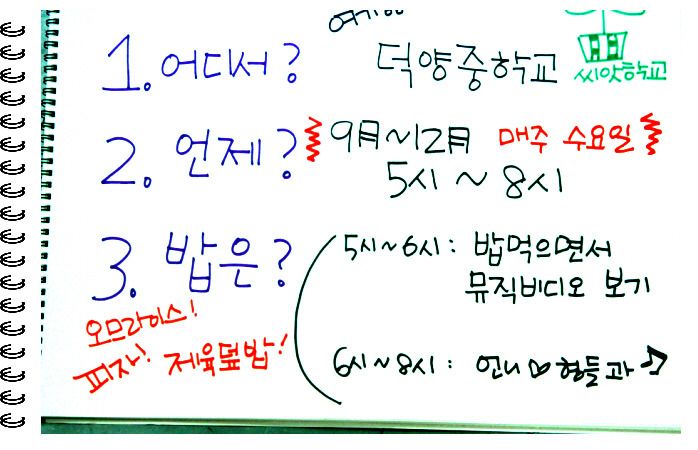 1. 어디서? 덕양중학교 씨앗학교
2. 언제? 9月~12月 매주 수요일
5시 ~ 8시
3. 밥은? 5시~6시: 밥먹으면서
뮤직비디오 보기
오므라이스!
피자! 제육덮밥!
6시~8시: 언니♡형들과♪